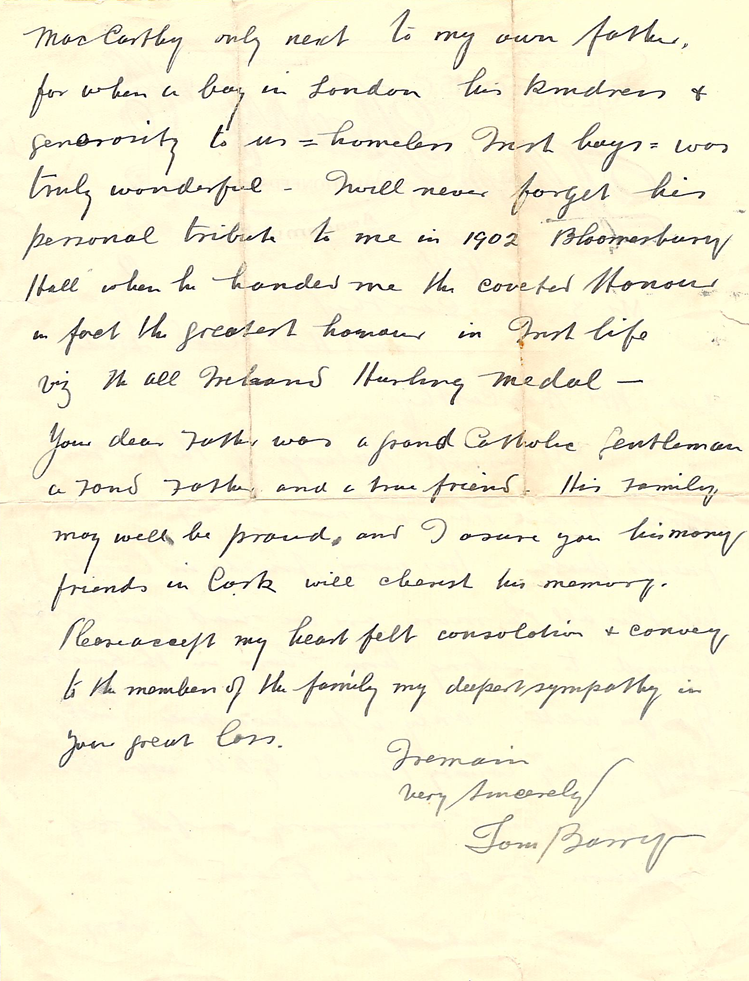 MacCarthy only next to my own father,
for when a boy in London his kindness &
generosity to us = homeless Irish boys = was
truly wonderful - I will never forget his
personal tribute to me in 1902 Bloomesbury
Hall when he handed me the coveted Honour
in fact the greatest honour in Irish life
viz the all Ireland Hurling medal —
Your dear Father was a grand Catholic gentleman
a fond Father and a true friend. His family
may well be proud, and I assure you his many
friends in Cork will cherish his memory.
Please accept my heart felt consolation & convey
to the members of the family my deepest sympathy in
your great loss.
I remain
very sincerely
Tom Barry